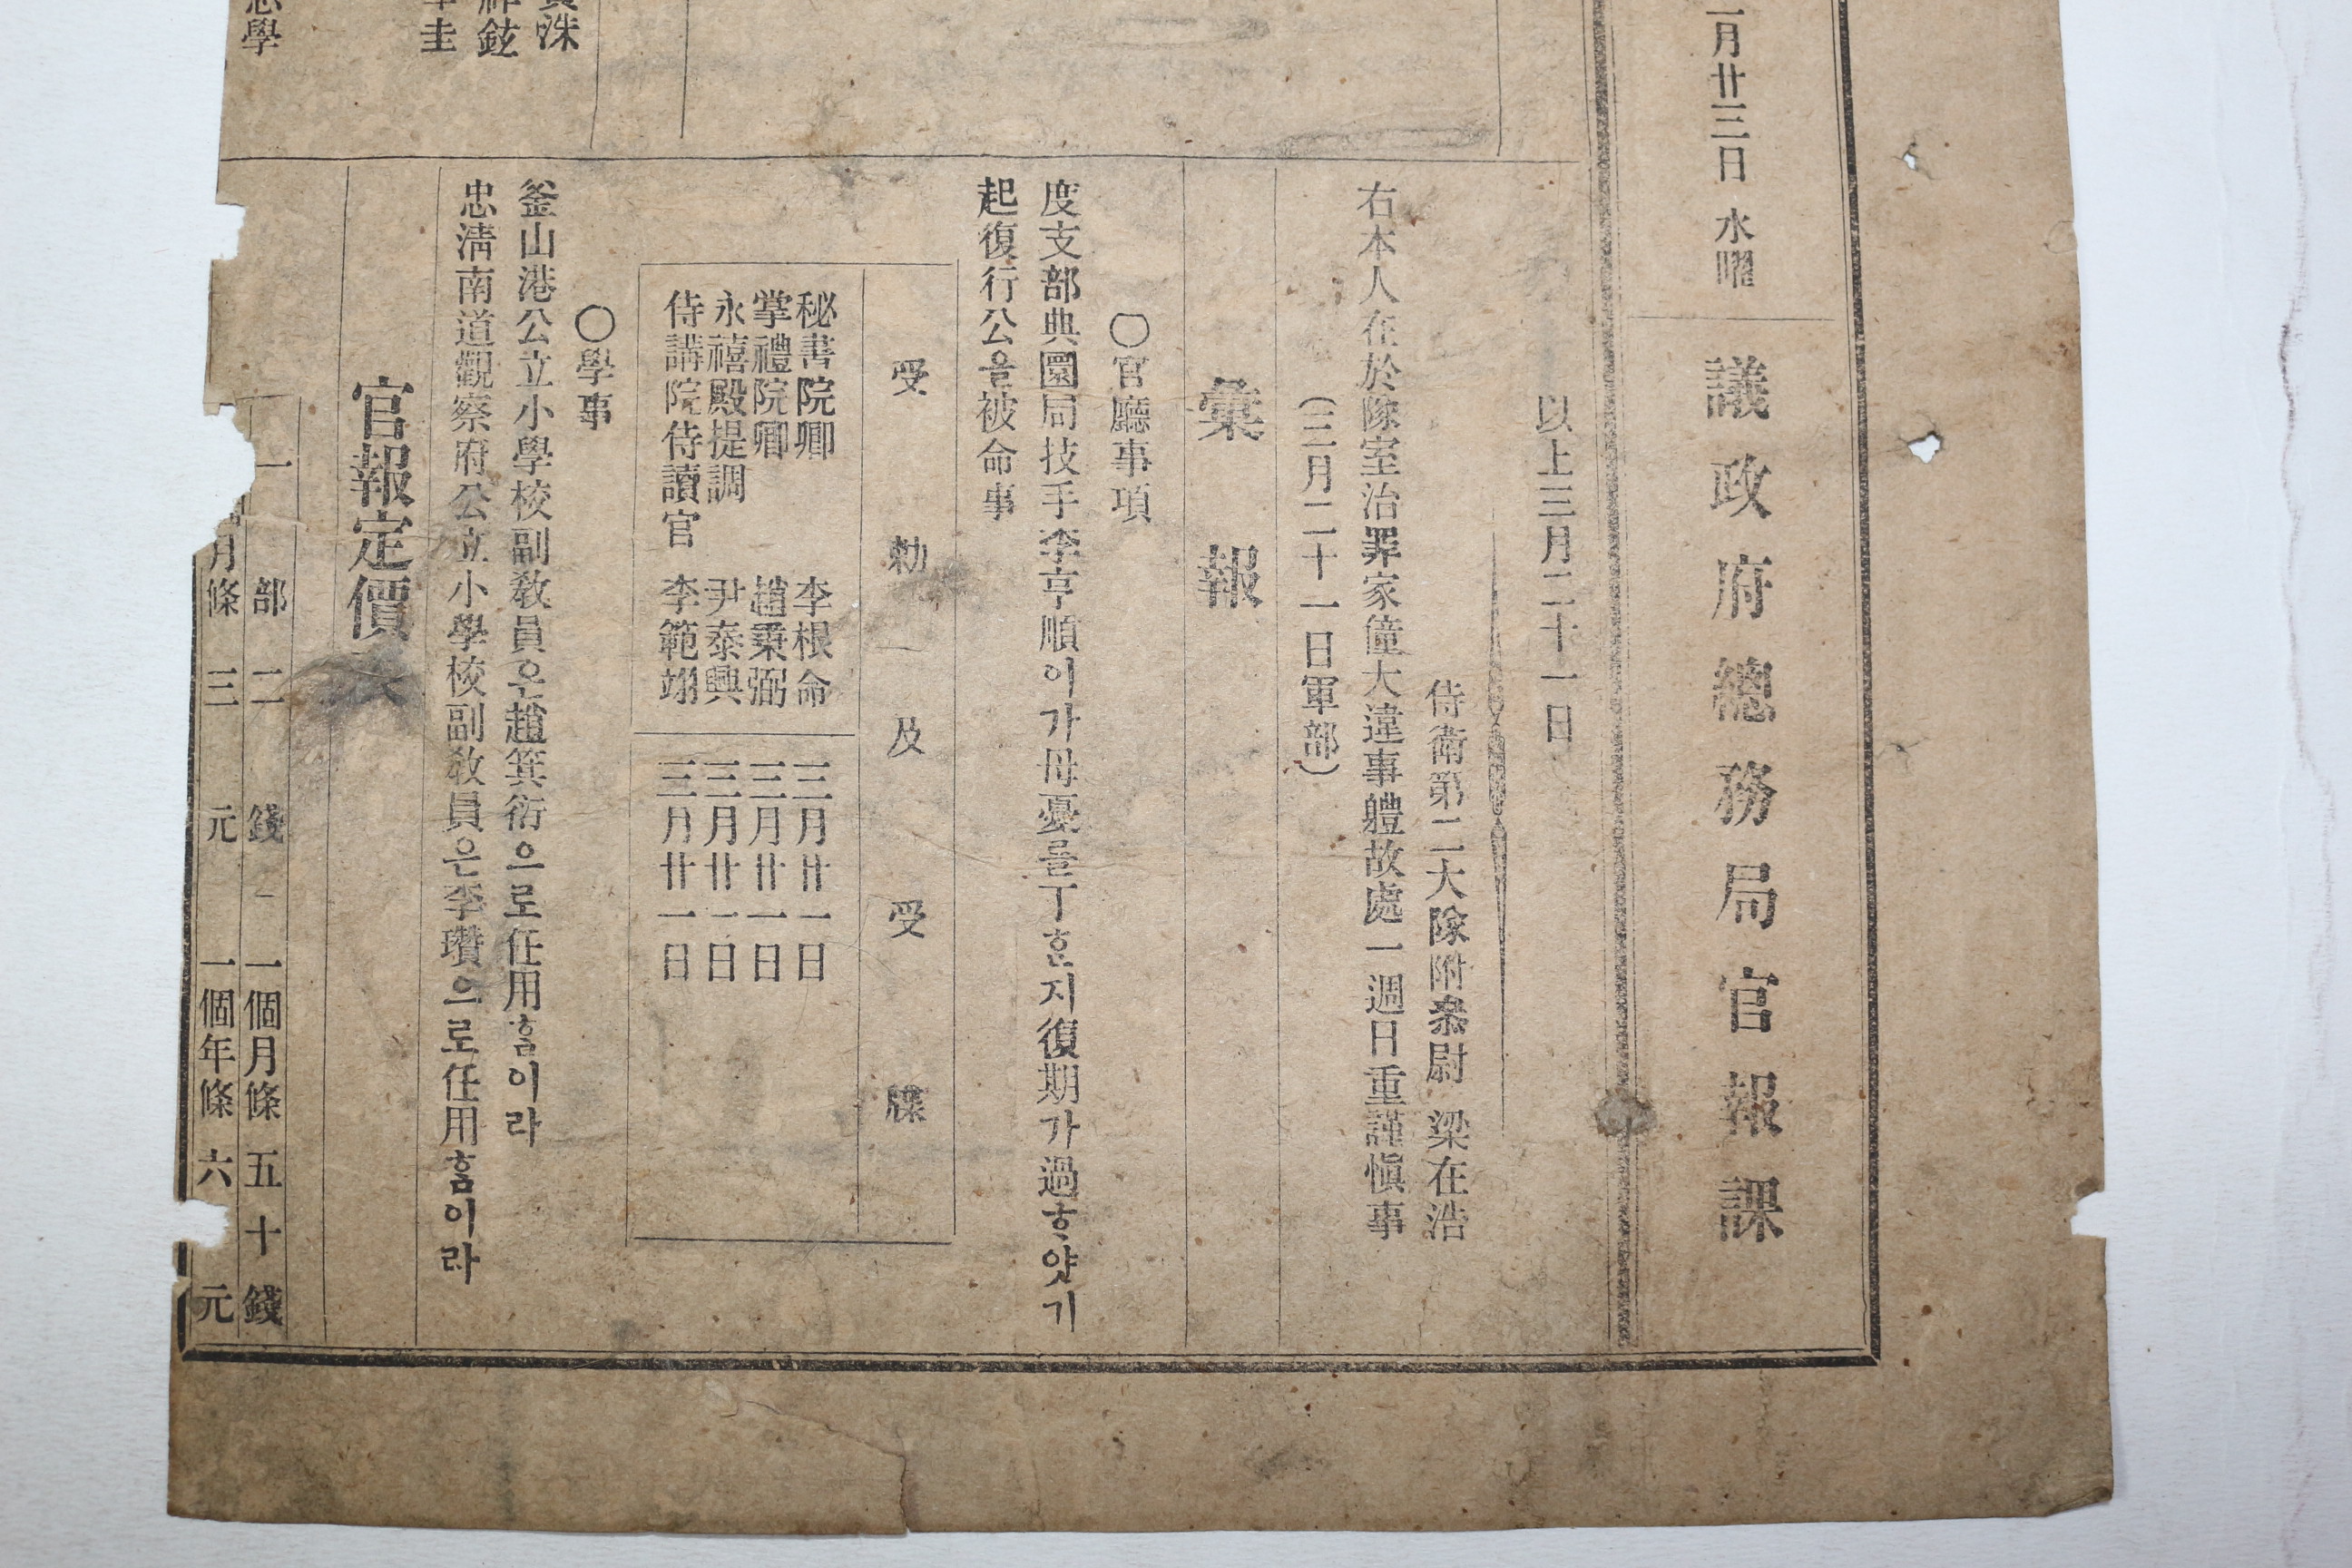 月廿三日 水曜
議政府總務局官報課
以上三月二十一日
侍衛第二大隊附參尉 梁在浩
右本人在於隊室治罪家僮大違事軆故處一週日重謹愼事
(三月二十一日軍部)
彙報
〇官廳事項
度支部典圜局技手李亨順이가母憂를丁ᄒᆞᆫ지復期가過ᄒᆞ얏기
起復行公을被命事
受勅及受牒
秘書院卿 李根命 三月廿一日
掌禮院卿 趙秉弼 三月廿一日
永禧殿提調 尹泰興 三月廿一日
侍講院侍讀官 李範翊 三月廿一日
〇學事
釜山港公立小學校副敎員은趙箕衍으로任用홈이라
忠淸南道觀察府公立小學校副敎員은李瓚으로任用홈이라
官報定價
一部 二錢 一個月條 五十錢
月條 三元 一個年條 六元
洙
鉉
圭
學